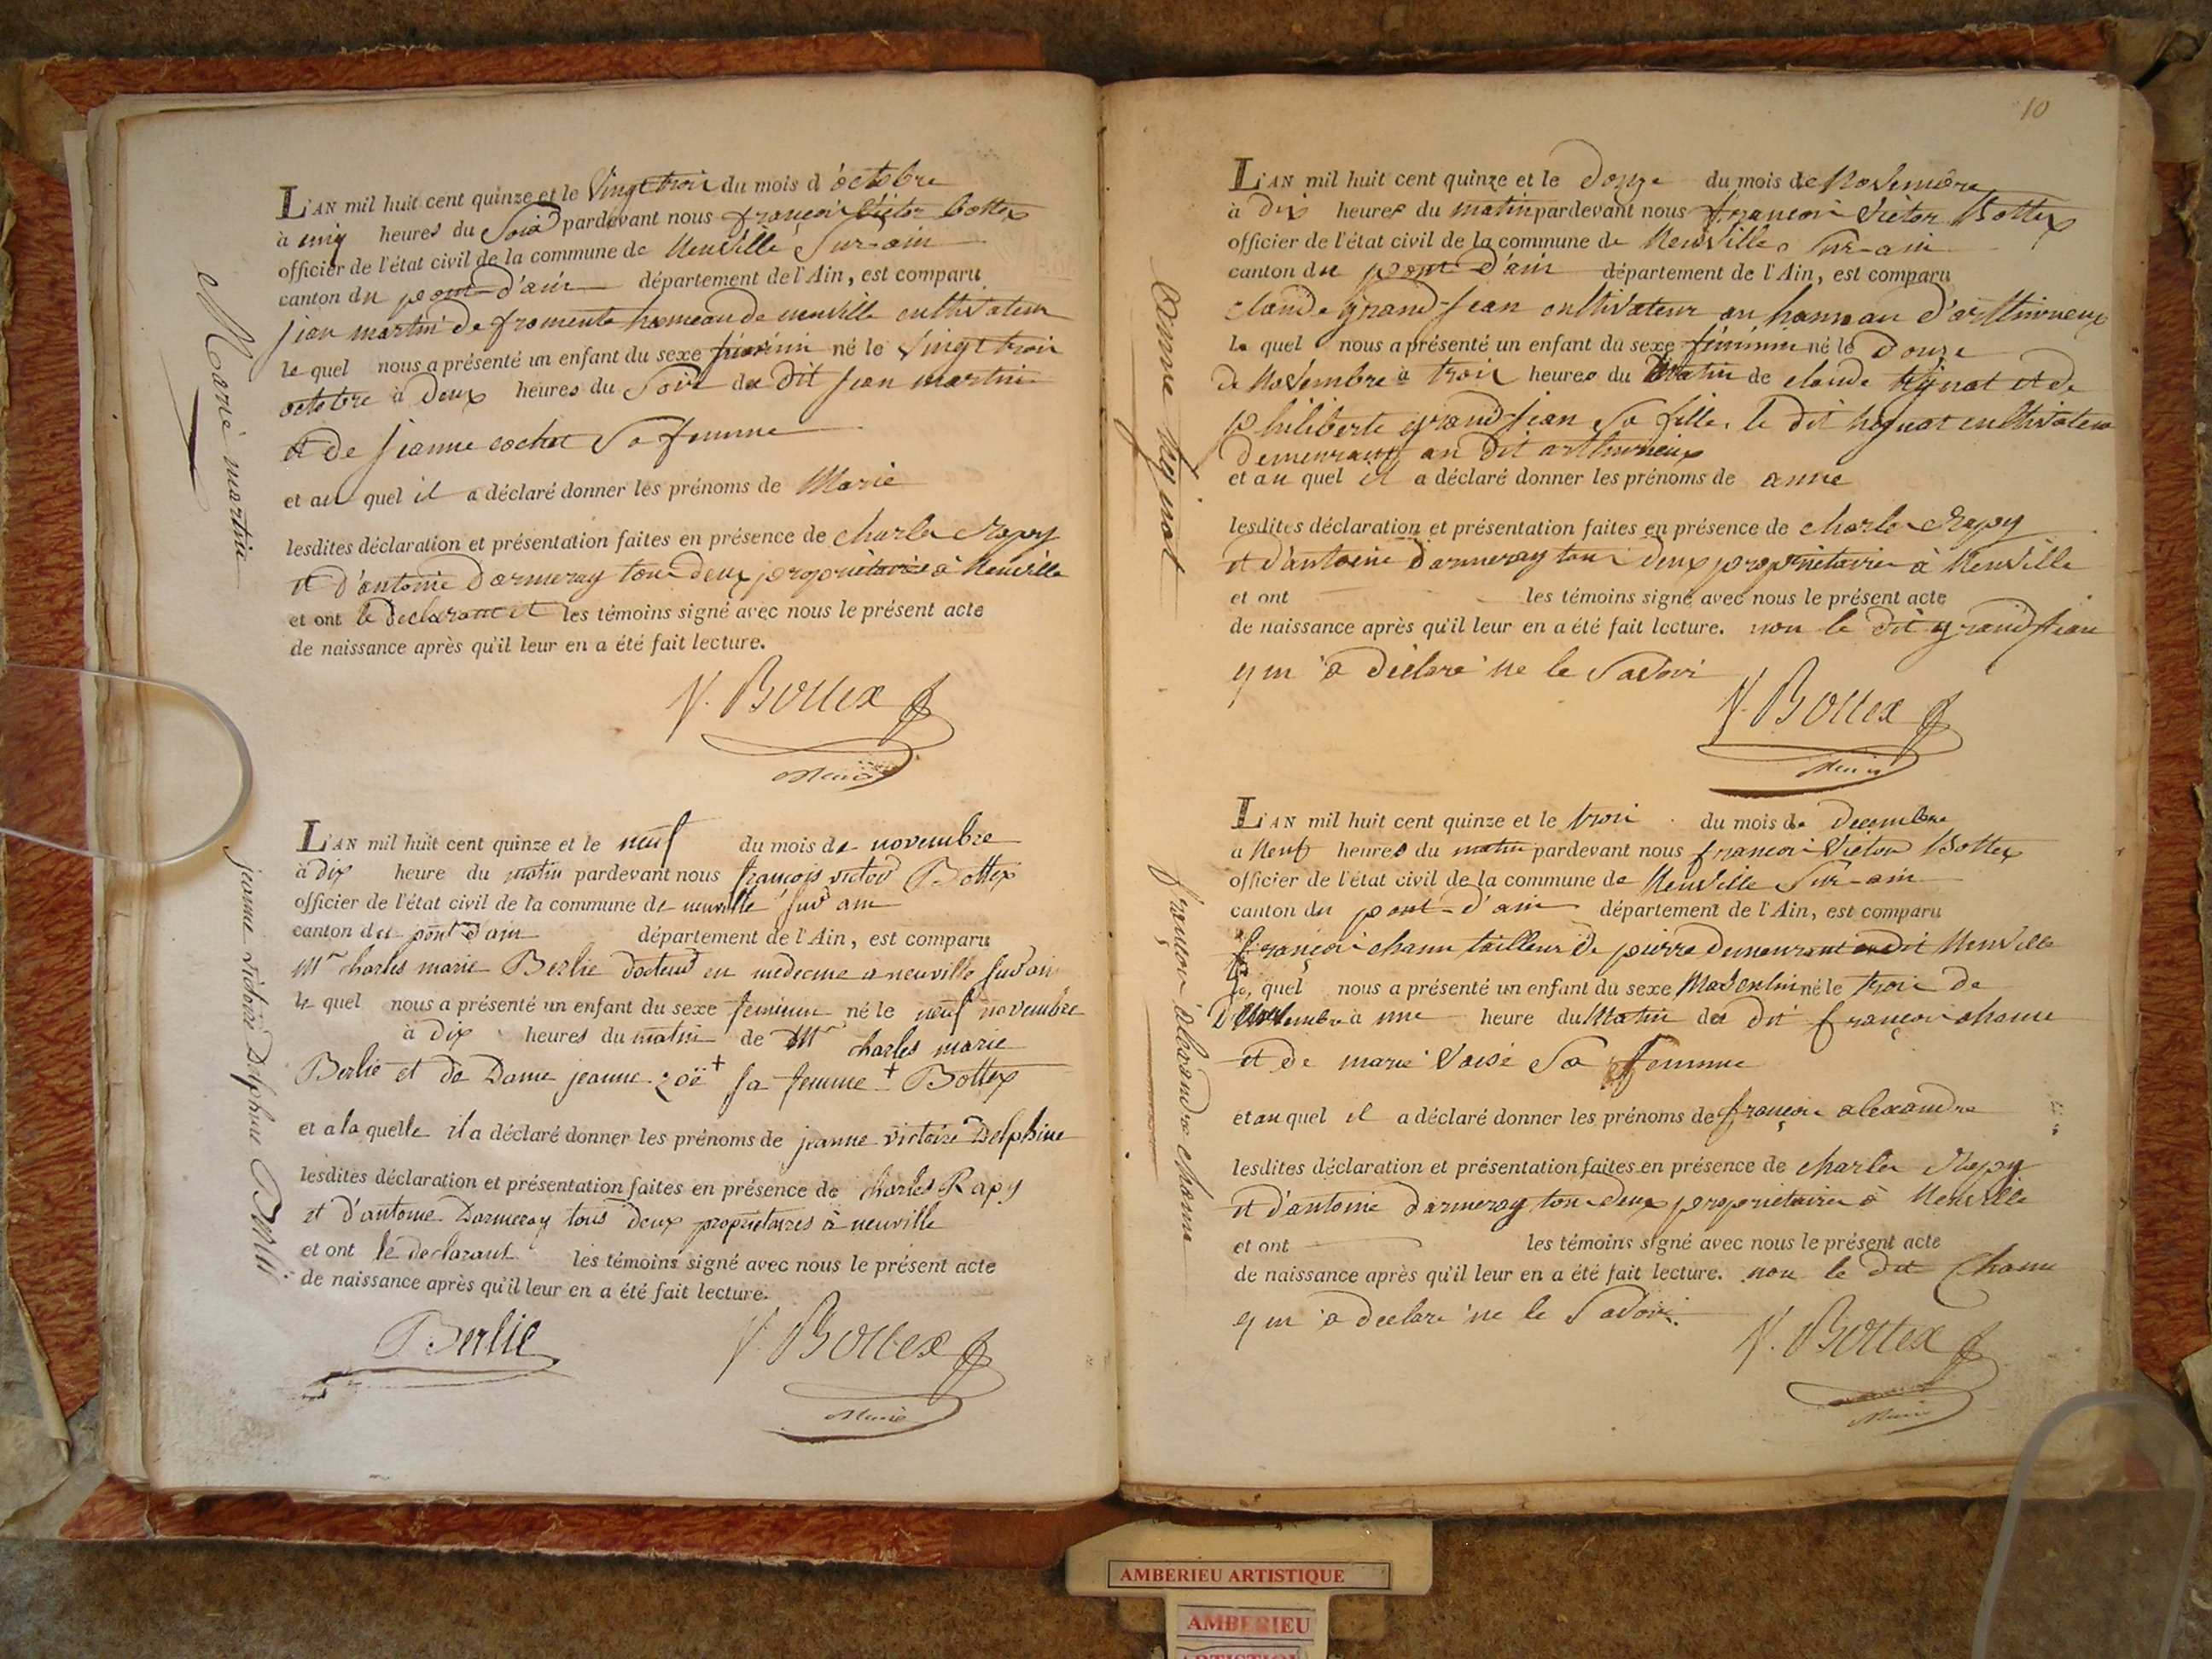 Marie martin
L'AN mil huit cent quinze et le Vingt trois du mois d'octobre
à cinq heures du Soir pardevant nous françois Victor Bottex
officier de l'état civil de la commune de Neuville Sur-ain
canton du pont-d'ain département de l'Ain, est comparu
jean martin de fromente hameau de neuville cultivateur
le quel nous a présenté un enfant du sexe féminin né le Vingt trois
octobre à Deux heures du Soir du dit jean martin
et de jeanne cochet Sa femme
et au quel il a déclaré donner les prénoms de Marie
lesdites déclaration et présentation faites en présence de charles Rapy
et d'antoine Darmeray tous Deux propriétaires à Neuville
et ont le declarant et les témoins signé avec nous le présent acte
de naissance après qu'il leur en a été fait lecture.
V. Bottex
Maire
jeanne victoire Delphine Berlie
L'AN mil huit cent quinze et le neuf du mois de novembre
à dix heure du matin pardevant nous françois victor Bottex
officier de l'état civil de la commune de neuville sur ain
canton du pont d'ain département de l'Ain, est comparu
Mr charles marie Berlie docteur en medecine a neuville sur ain
le quel nous a présenté un enfant du sexe feminin né le neuf novembre
à dix heures du matin de Mr charles marie
Berlie et de Dame jeanne zoë + sa femme + Bottex
et a la quelle il a déclaré donner les prénoms de jeanne victoire Delphine
lesdites déclaration et présentation faites en présence de charles Rapy
et d'antoine Darmeray tous deux propriétaires à neuville
et ont le declarant les témoins signé avec nous le présent acte
de naissance après qu'il leur en a été fait lecture.
Berlie
V. Bottex
Maire
10
anne
L'AN mil huit cent quinze et le Douze du mois de Novembre
à Dix heures du matin pardevant nous françois Victor Bottex
officier de l'état civil de la commune de Neuville Sur-ain
canton du pont-d'ain département de l'Ain, est comparu
claude grand-jean cultivateur au hameau
le quel nous a présenté un enfant du sexe féminin né le Douze
De Novembre à trois heures du Matin de claude et de
philiberte grand-jean Sa fille, le dit cultivateur
Demeurant au Dit
et au quel il a déclaré donner les prénoms de anne
lesdites déclaration et présentation faites en présence de charles Rapy
et d'antoine Darmeray tous Deux propriétaires à Neuville
et ont les témoins signé avec nous le présent acte
de naissance après qu'il leur en a été fait lecture. non le Dit grand jean
qui a Déclaré ne le Savoir
V. Bottex
Maire
françois alexandre chanu
L'AN mil huit cent quinze et le trois du mois de Decembre
a Neuf heures du matin pardevant nous françois Victor Bottex
officier de l'état civil de la commune de Neuville Sur-ain
canton du pont-d'ain département de l'Ain, est comparu
françois chanu tailleur De pierre Demeurant au Dit Neuville
le quel nous a présenté un enfant du sexe Masculin né le trois de
à une heure du Matin du dit françois chanu
et de marie Sa femme
et au quel il a déclaré donner les prénoms de françois alexandre
lesdites déclaration et présentation faites en présence de charles Rapy
et d'antoine Darmeray tous Deux propriétaires à Neuville
et ont les témoins signé avec nous le présent acte
de naissance après qu'il leur en a été fait lecture. non le Dit Chanu
qui a Declaré ne le Savoir
V. Bottex
Maire
AMBERIEU ARTISTIQUE
AMBERIEU
ARTISTIQUE